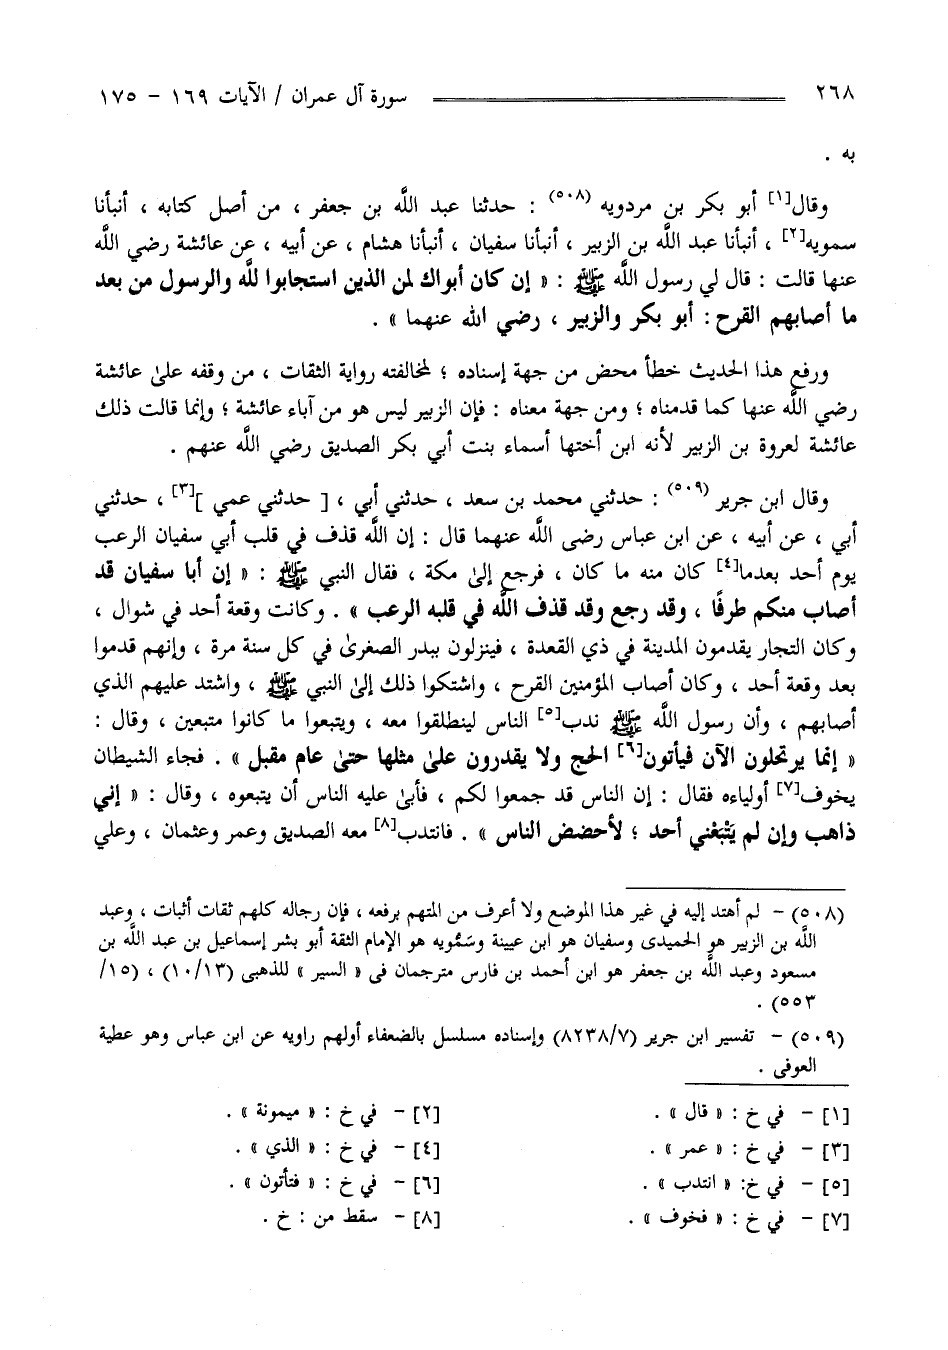 ٢٦٨ سورة آل عمران / الآيات ١٦٩ - ١٧٥
به .
وقال[١] أبو بكر بن مردويه (٥٠٨) : حدثنا عبد اللَّه بن جعفر ، من أصل كتابه ، أنبأنا
سمويه[٢] ، أنبأنا عبد اللَّه بن الزبير ، أنبأنا سفيان ، أنبأنا هشام ، عن أبيه ، عن عائشة رضي اللَّه
عنها قالت : قال لي رسول اللَّه ﷺ : « إن كان أبواك لمن الذين استجابوا للَّه والرسول من بعد
ما أصابهم القرح : أبو بكر والزبير ، رضي الله عنهما » .
ورفع هذا الحديث خطأ محض من جهة إسناده ؛ لمخالفته رواية الثقات ، من وقفه علىٰ عائشة
رضي اللَّه عنها كما قدمناه ؛ ومن جهة معناه : فإن الزبير ليس هو من آباء عائشة ؛ وإنما قالت ذلك
عائشة لعروة بن الزبير لأنه ابن أختها أسماء بنت أبي بكر الصديق رضي اللَّه عنهم .
وقال ابن جرير (٥٠٩) : حدثني محمد بن سعد ، حدثني أبي ، [ حدثني عمي ][٣] ، حدثني
أبي ، عن أبيه ، عن ابن عباس رضى اللَّه عنهما قال : إن اللَّه قذف في قلب أبي سفيان الرعب
يوم أحد بعدما[٤] كان منه ما كان ، فرجع إلىٰ مكة ، فقال النبي ﷺ : « إن أبا سفيان قد
أصاب منكم طرفًا ، وقد رجع وقد قذف اللَّه في قلبه الرعب » . وكانت وقعة أحد في شوال ،
وكان التجار يقدمون المدينة في ذي القعدة ، فينزلون ببدر الصغرىٰ في كل سنة مرة ، وإنهم قدموا
بعد وقعة أحد ، وكان أصاب المؤمنين القرح ، واشتكوا ذلك إلىٰ النبي ﷺ ، واشتد عليهم الذي
أصابهم ، وأن رسول اللَّه ﷺ ندب[٥] الناس لينطلقوا معه ، ويتبعوا ما كانوا متبعين ، وقال :
« إنما يرتحلون الآن فيأتون[٦] الحج ولا يقدرون علىٰ مثلها حتىٰ عام مقبل » . فجاء الشيطان
يخوف[٧] أولياءه فقال : إن الناس قد جمعوا لكم ، فأبىٰ عليه الناس أن يتبعوه ، وقال : « إني
ذاهب وإن لم يَتْبَعْني أحد ؛ لأحضض الناس » . فانتدب[٨] معه الصديق وعمر وعثمان ، وعلي
(٥٠٨) - لم أهتد إليه في غير هذا الموضع ولا أعرف من المتهم برفعه ، فإن رجاله كلهم ثقات أثبات ، وعبد
اللَّه بن الزبير هو الحميدى وسفيان هو ابن عيينة وسَمُّويه هو الإمام الثقة أبو بشر إسماعيل بن عبد اللَّه بن
مسعود وعبد اللَّه بن جعفر هو ابن أحمد بن فارس مترجمان فى « السير » للذهبى (١٠/١٣) ، (١٥/
٥٥٣) .
(٥٠٩) - تفسير ابن جرير (٨٢٣٨/٧) وإسناده مسلسل بالضعفاء أولهم راويه عن ابن عباس وهو عطية
العوفى .
[١] - في خ : « قال » . [٢] - في خ : « ميمونة » .
[٣] - في خ : « عمر » . [٤] - في خ : « الذي » .
[٥] - في خ: « انتدب » . [٦] - في خ : « فتأتون » .
[٧] - في خ : « فخوف » . [٨] - سقط من : خ .